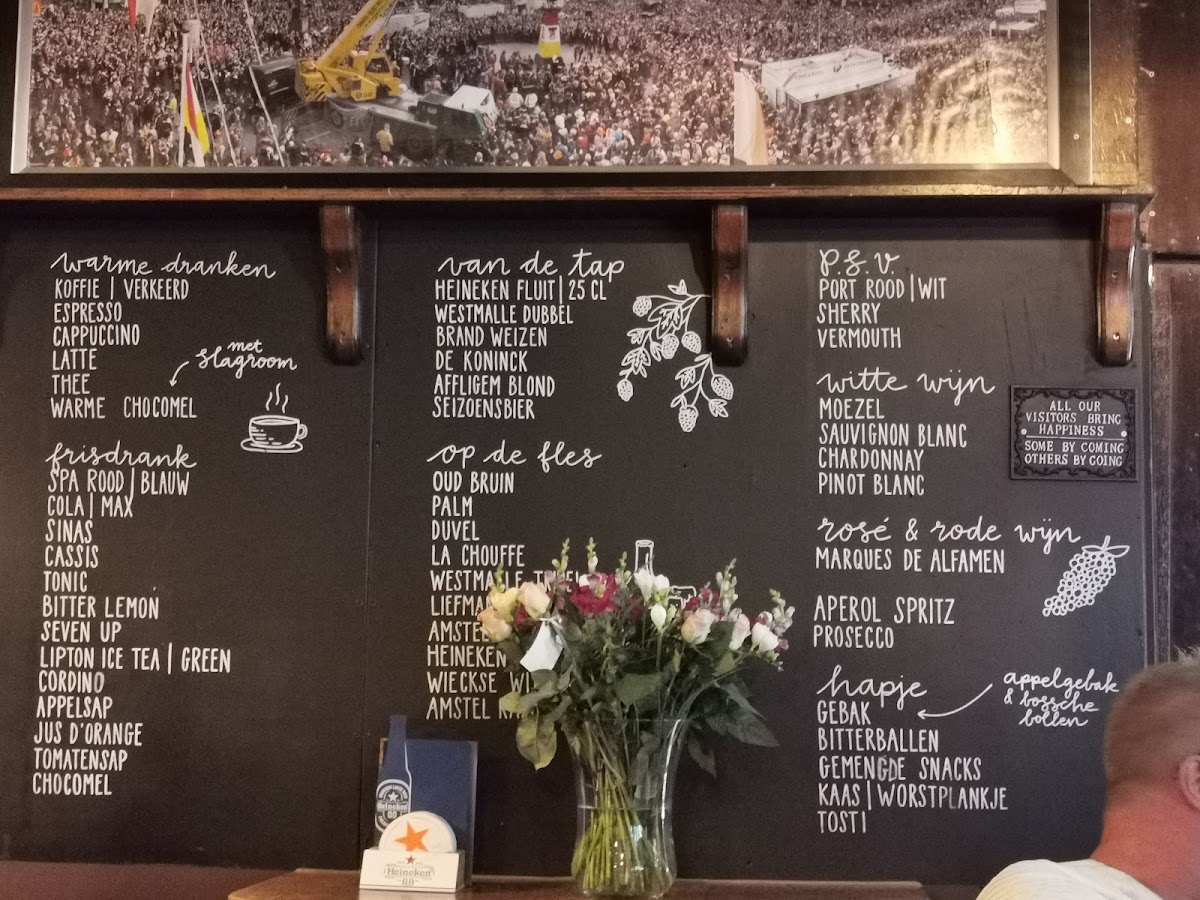 warme dranken
KOFFIE | VERKEERD
ESPRESSO
CAPPUCCINO
LATTE
THEE
WARME CHOCOMEL
met
slagroom
frisdrank
SPA ROOD | BLAUW
COLA | MAX
SINAS
CASSIS
TONIC
BITTER LEMON
SEVEN UP
LIPTON ICE TEA | GREEN
CORDINO
APPELSAP
JUS D'ORANGE
TOMATENSAP
CHOCOMEL
van de tap
HEINEKEN FLUIT | 25 CL
WESTMALLE DUBBEL
BRAND WEIZEN
DE KONINCK
AFFLIGEM BLOND
SEIZOENSBIER
op de fles
OUD BRUIN
PALM
DUVEL
LA CHOUFFE
WESTMALLE
AMSTEL
HEINEKEN
WIECKSE
AMSTEL
P.S.V.
PORT ROOD | WIT
SHERRY
VERMOUTH
witte wijn
MOEZEL
SAUVIGNON BLANC
CHARDONNAY
PINOT BLANC
rosé & rode wijn
MARQUES DE ALFAMEN
APEROL SPRITZ
PROSECCO
hapje
GEBAK
BITTERBALLEN
GEMENGDE SNACKS
KAAS | WORSTPLANKJE
TOSTI
appelgebak
& bossche
bollen
ALL OUR
VISITORS BRING
HAPPINESS
SOME BY COMING
OTHERS BY GOING
Heineken
0.0
Heineken
0.0